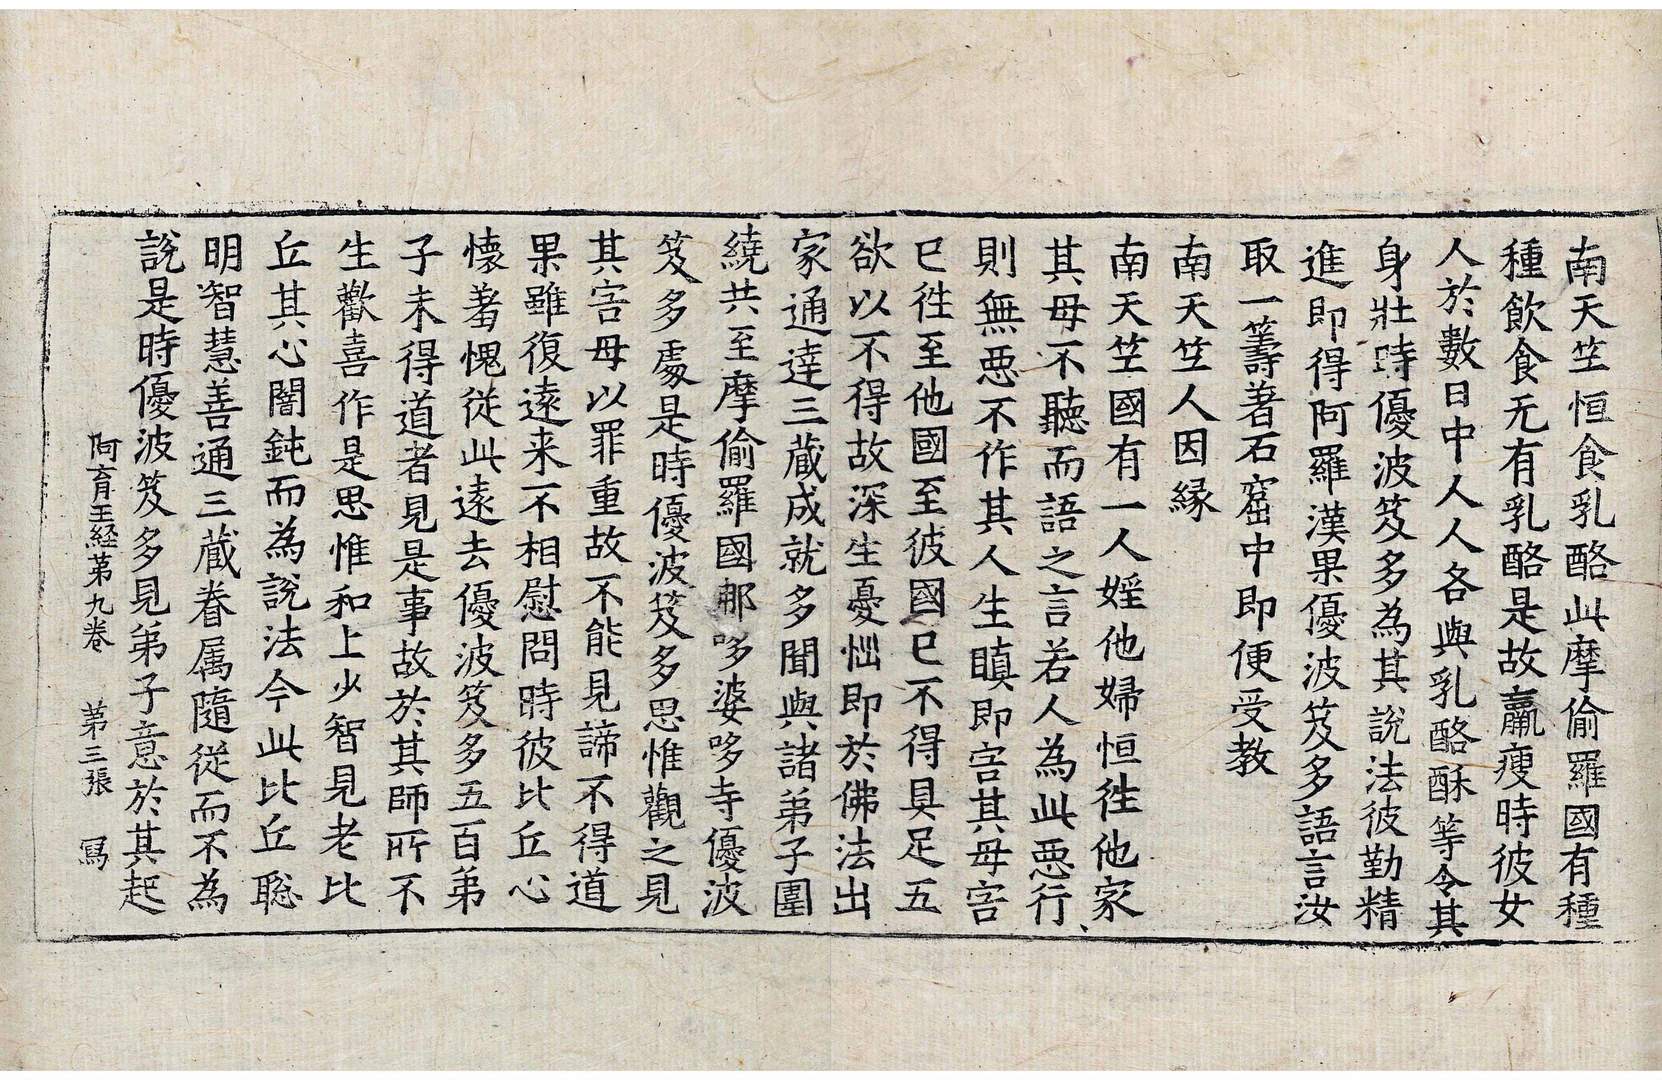 南天竺恒食乳酪此摩偷羅國有種
種飲食无有乳酪是故羸瘦時彼女
人於數日中人人各與乳酪酥等令其
身壯時優波笈多為其說法彼勤精
進即得阿羅漢果優波笈多語言汝
取一籌著石窟中即便受教
南天竺人因縁
南天竺國有一人婬他婦恒徃他家
其母不聽而語之言若人為此惡行
則無惡不作其人生瞋即害其母害
已徃至他國至彼國已不得具足五
欲以不得故深生憂惱即於佛法出
家通達三蔵成就多聞與諸弟子圍
繞共至摩偷羅國那哆婆哆寺優波
笈多處是時優波笈多思惟觀之見
其害母以罪重故不能見諦不得道
果雖復遠来不相慰問時彼比丘心
懐著愧従此遠去優波笈多五百弟
子未得道者見是事故於其師所不
生歡喜作是思惟和上少智見老比
丘其心闇鈍而為說法今此比丘聡
明智慧善通三蔵眷属隨従而不為
說是時優波笈多見弟子意於其起
阿育王経苐九卷 苐三張 冩